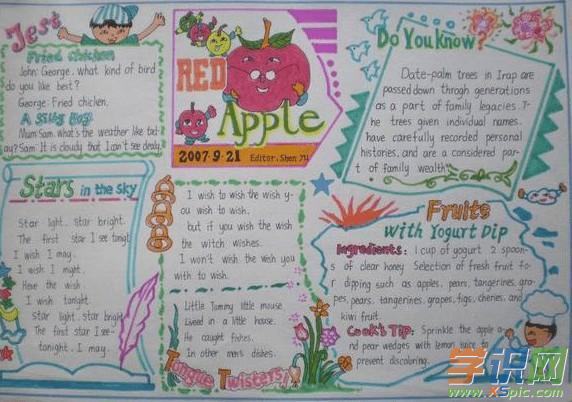 Jest
Fried Chicken
John: George, what kind of bird
do you like best?
George: Fried chiclen.
Mum: Sam, what's the weather like tod-
ay? Sam: It is cloudy that I can't see
RED
Apple
2007.9.21 Editor. Shen
Do You Know?
Date-palm trees in Irap are
passed down throgh generations
as a part of family legacies. T-
he trees given individual names,
have carefully recorded personal
histories, and are a considered par-
t of family wealth.
Stars in the sky
Star light, star bright,
The first star I see tonigt
I wish I may.
I wish I might,
Have the wish,
I wish tonigt
Star light, star bright
The first star I see
tonight, I may.
I wish to wish the wish y-
ou wish to wish,
but if you wish the wish
the witch wishes.
I won't wish the wish you
wish to wish.
Little Tommy little mouse
Livied in a little house.
He caught fishes,
In other men's dishes.
Tongue Twisters
Fruits
With Yogurt Dip
Ingredients: 1 cup of yogurt 2 spoon-
s of clear honey Selection of fresh fruit fo-
r dipping such as apples, pears, tangerines, gra-
pes, pears, tangerines, grapes, figs, cheries, and
kiwi fruit.
Cook's Tip: Sprinkle the apple a-
nd pear wedges with lemon juice to
prevent discoloring.
学识网
www.XSpic.com